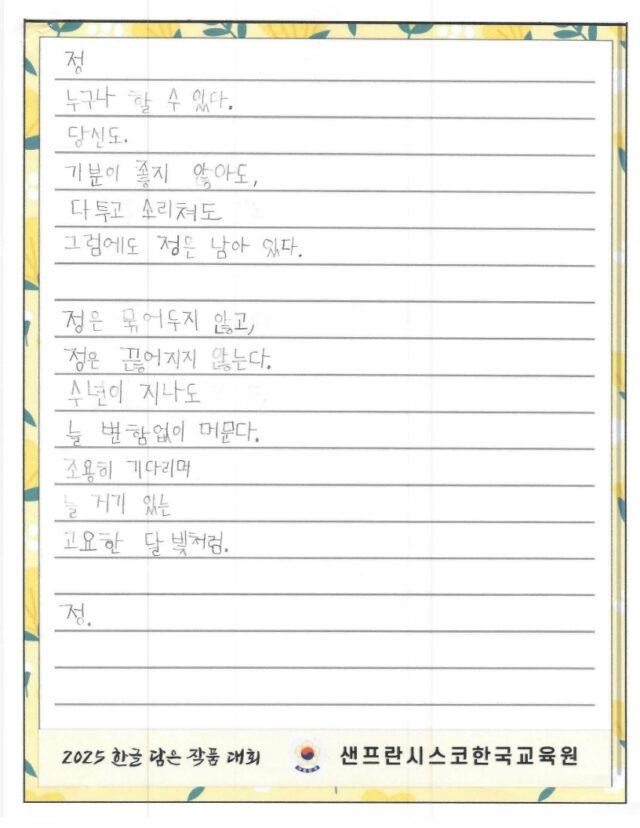 정
누구나 할 수 있다.
당신도.
기분이 좋지 않아도,
다투고 소리쳐도
그럼에도 정은 남아 있다.
정은 묶어두지 않고,
정은 끊어지지 않는다.
수년이 지나도
늘 변함없이 머문다.
조용히 기다리며
늘 거기 있는
고요한 달빛처럼.
정.
2025 한글 담은 작품 대회
샌프란시스코한국교육원